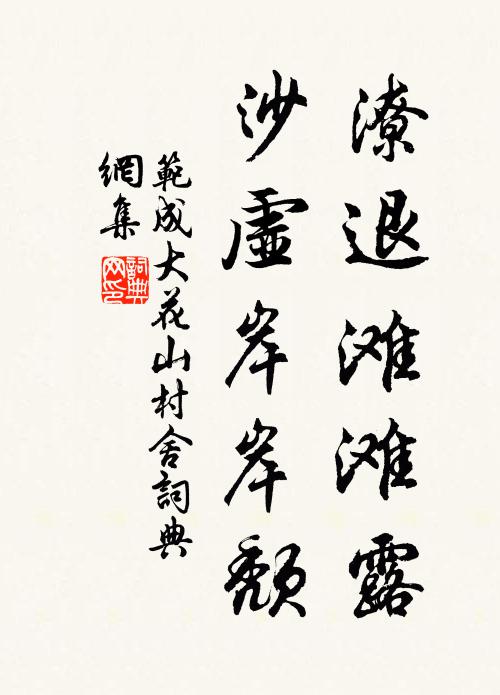 潦退滩滩露
沙虛岸岸頹
範成大花山村舍詞典
網集
詞典
网印